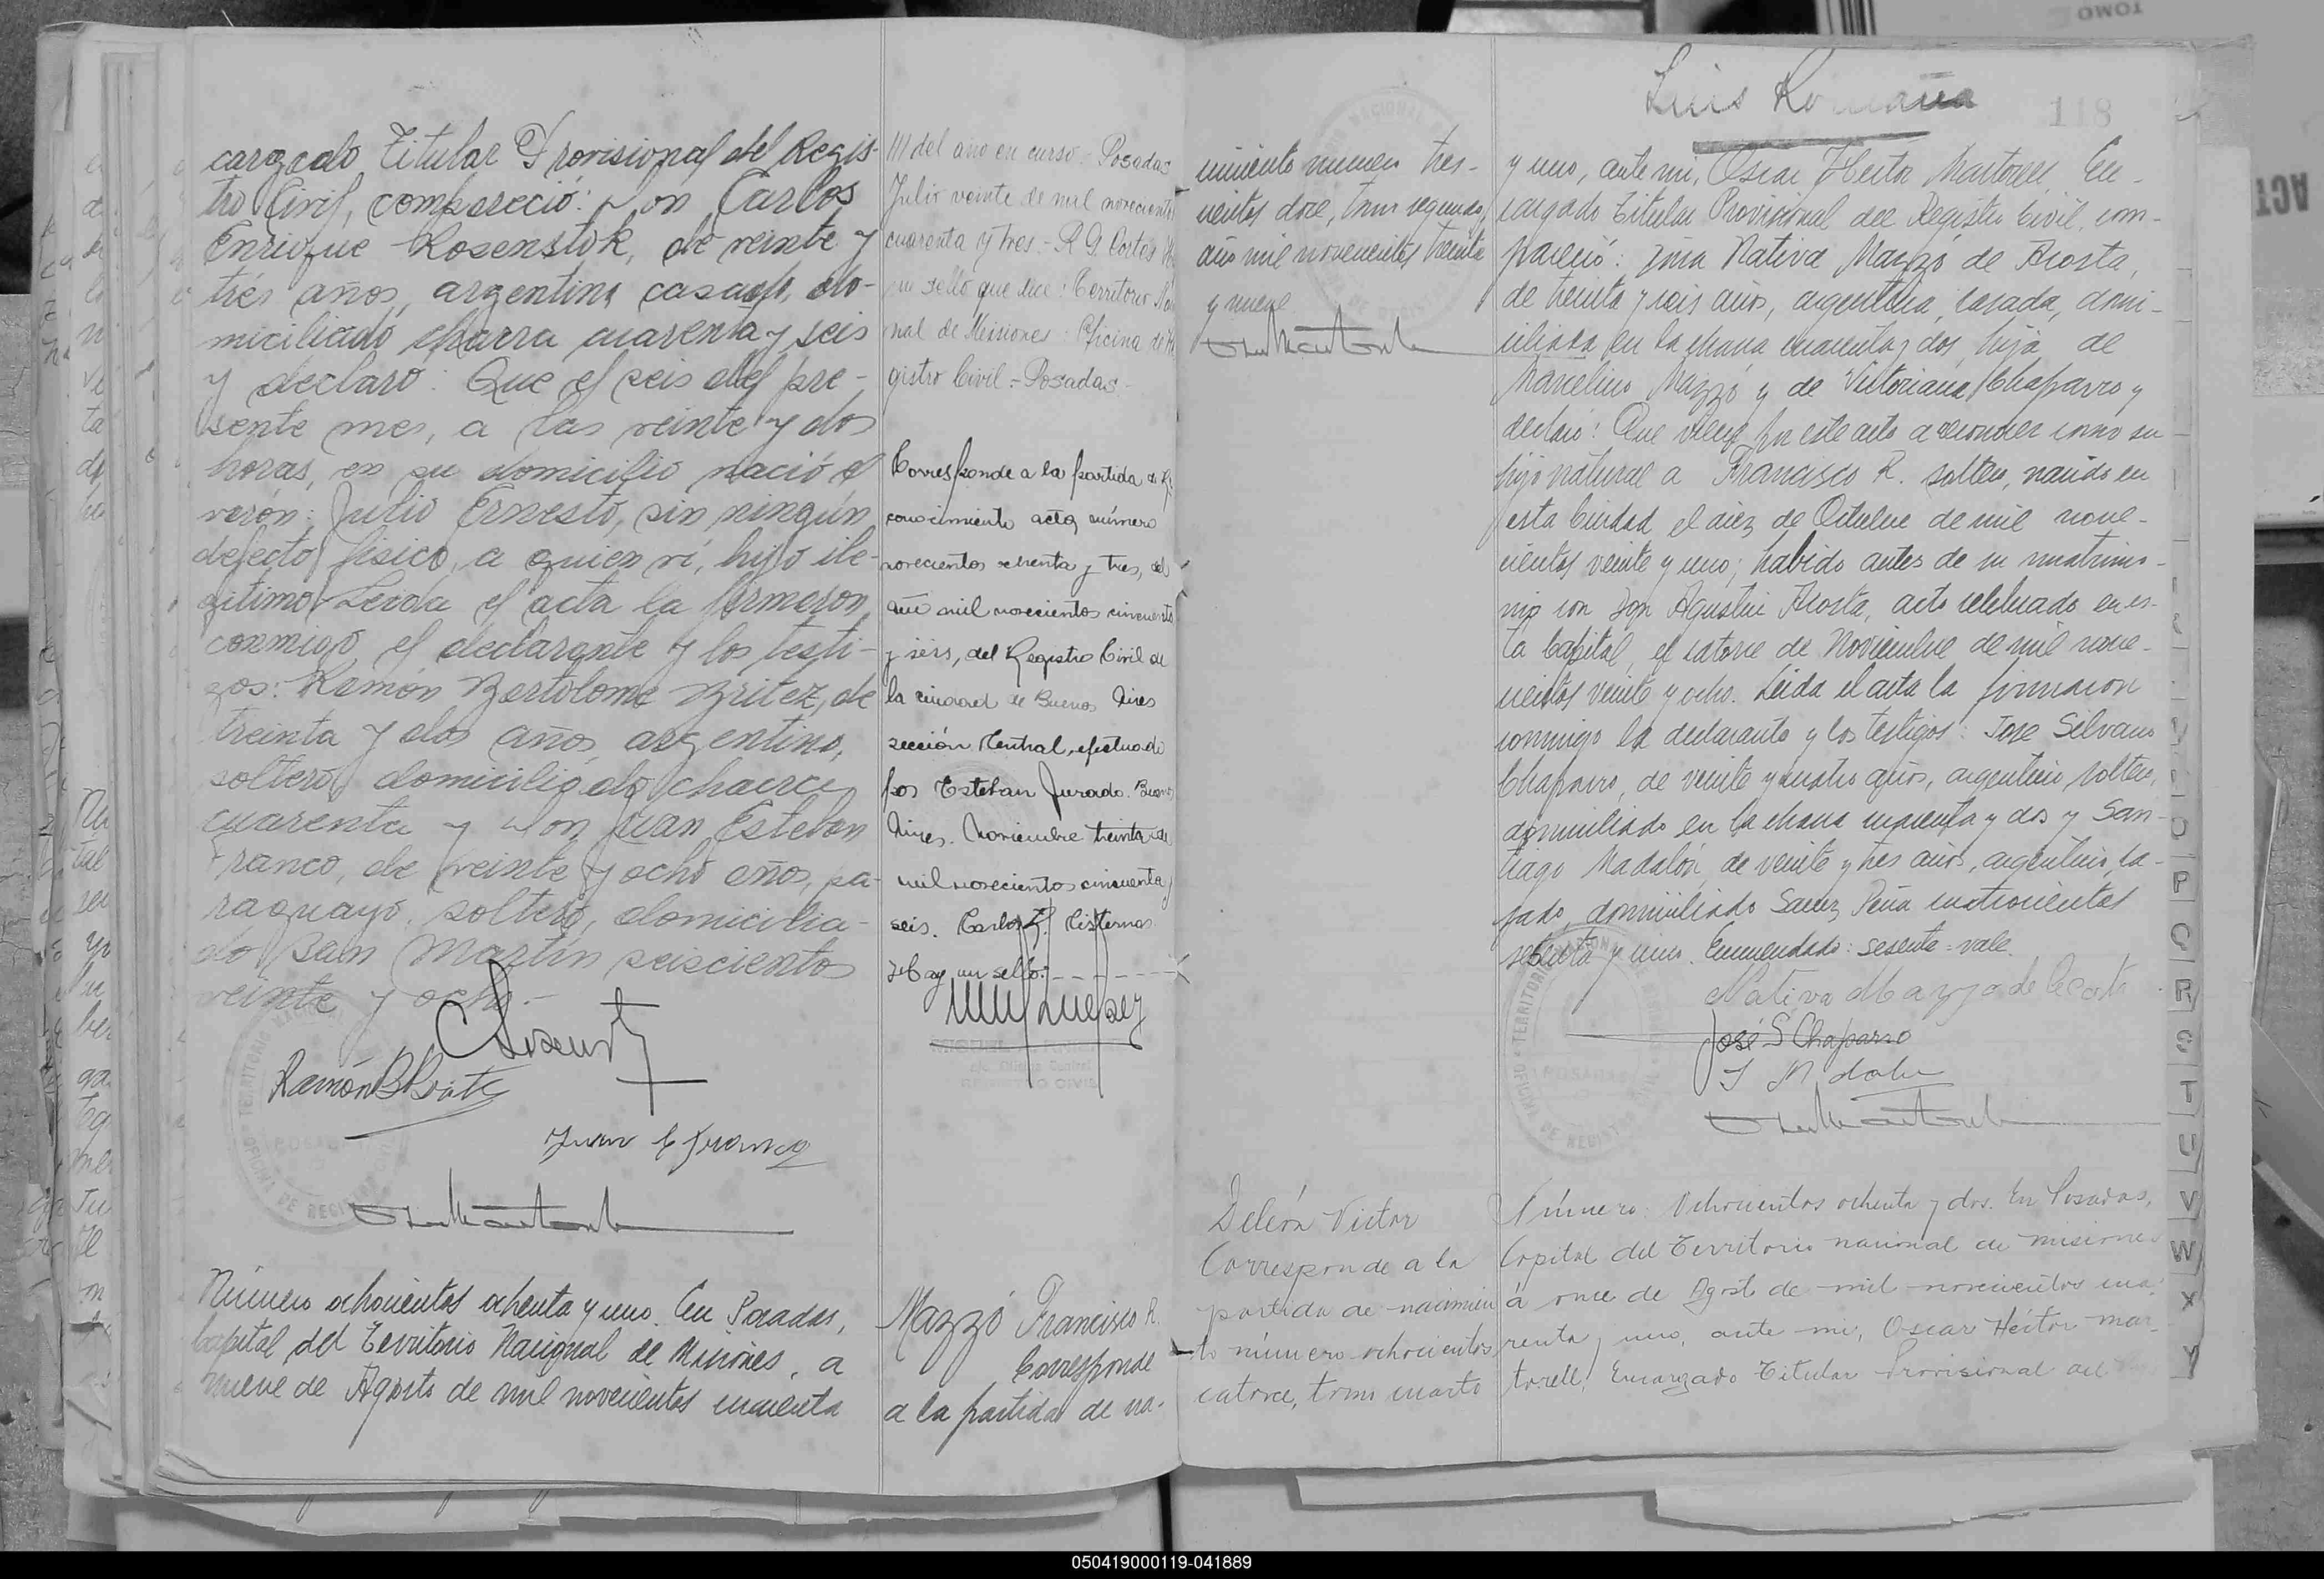 cargado Titular Provisional del Regis-
tro Civil, compareció: Don Carlos
Enrique Rosenstok, de veinte y
trés años, argentino casado, do-
miciliado chacra cuarenta y seis
y declaró: Que el seis del pre-
sente mes, a las veinte y dos
horas, en su domicilio nació el
varón: Julio Ernesto, sin ningún
defecto fisico, a quien ví, hijo ile-
gitimo. Leida el acta la firmaron
conmigo el declarante y los testi-
gos: Ramón Bartolome Britez, de
treinta y dos años, argentino,
soltero domiciliado chacra
cuarenta y Don Juan Esteban
Franco, de veinte y ocho años, pa-
raguayo, soltero, domicilia-
do San Martín seiscientos
veinte y ocho.-
Juan E Franco
Número ochocientos ochenta y uno. En Posadas,
Capital del Territorio Nacional de Misiones, a
nueve de Agosto de mil novecientos cuarenta
III del año en curso.- Posadas
Julio veinte de mil novecientos
cuarenta y tres.- R. G. Cortés
un sello que dice: Territorio
nal de Misiones: Oficina de
gistro Civil = Posadas-
Corresponde a la partida de
conocimiento acta número
novecientos ochenta y tres, del
año mil novecientos cincuenta
y seis, del Registro Civil de
la ciudad de Buenos Aires
sección Central, efectuado
por Esteban Jurado. Buenos
Aires. Noviembre treinta de
mil novecientos cincuenta y
seis. Carlos Cisternas.
Hay un sello:- - - - - -
REGISTRO CIVIL
Mazzó Francisco R.
Corresponde
a la partida de na-
Luis Romaña
118
cimiento numero tres-
cientos doce, tomo segundo,
año mil novecientos treinta
y nueve.
y uno, ante mi, Oscar Hector Martorell, En-
cargado Titular Provisional del Registro Civil, com-
pareció: Doña Nativa Mazzó de Acosta,
de treinta y seis años, argentina, casada, domi-
ciliada en la chacra cuarenta y dos, hija de
Marcelino Mazzó y de Victoriana Chaparro y
declaró: Que viene por este acto a reconocer como su
hijo natural a Francisco R. soltero, nacido en
esta Ciudad el diez de Octubre de mil nove-
cientos veinte y uno; habido antes de su matrimo-
nio con Don Agustín Acosta, acto celebrado en es-
ta Capital, el catorce de Noviembre de mil nove-
cientos veinte y ocho. Leida el acta la firmaron
conmigo la declarante y los testigos: Jose Silvano
Chaparro, de veinte y cuatro años, argentino, soltero,
domiciliado en la chacra cuarenta y dos y San-
tiago Madalón, de veinte y tres años, argentino, ca-
sado, domiciliado Saenz Peña cuatrocientos
sesenta y uno. Enmendado: sesenta = vale.
Nativa Mazzo de Acosta
José S Chaparro
Deleón Victor
Corresponde a la
partida de nacimien
to número ochocientos
catorce, tomo cuarto
Número: Ochocientos ochenta y dos. En Posadas,
Capital del Territorio nacional de misiones
á once de Agosto de mil novecientos cua-
renta y uno, ante mi, Oscar Héctor Mar-
torell, Encargado Titular Provisional del
P
Q
R
S
T
U
V
W
X
Y
TOMO
050419000119-041889